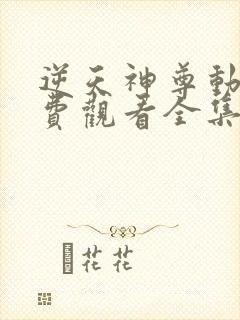 逆天神尊動
費觀看全集
花花